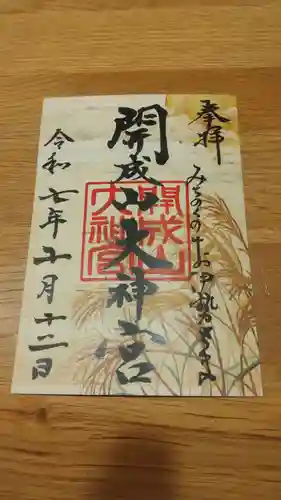 奉拝
みちのくのおいせさま
開成山大神宮
開成山
大神宮
令和七年十一月十二日